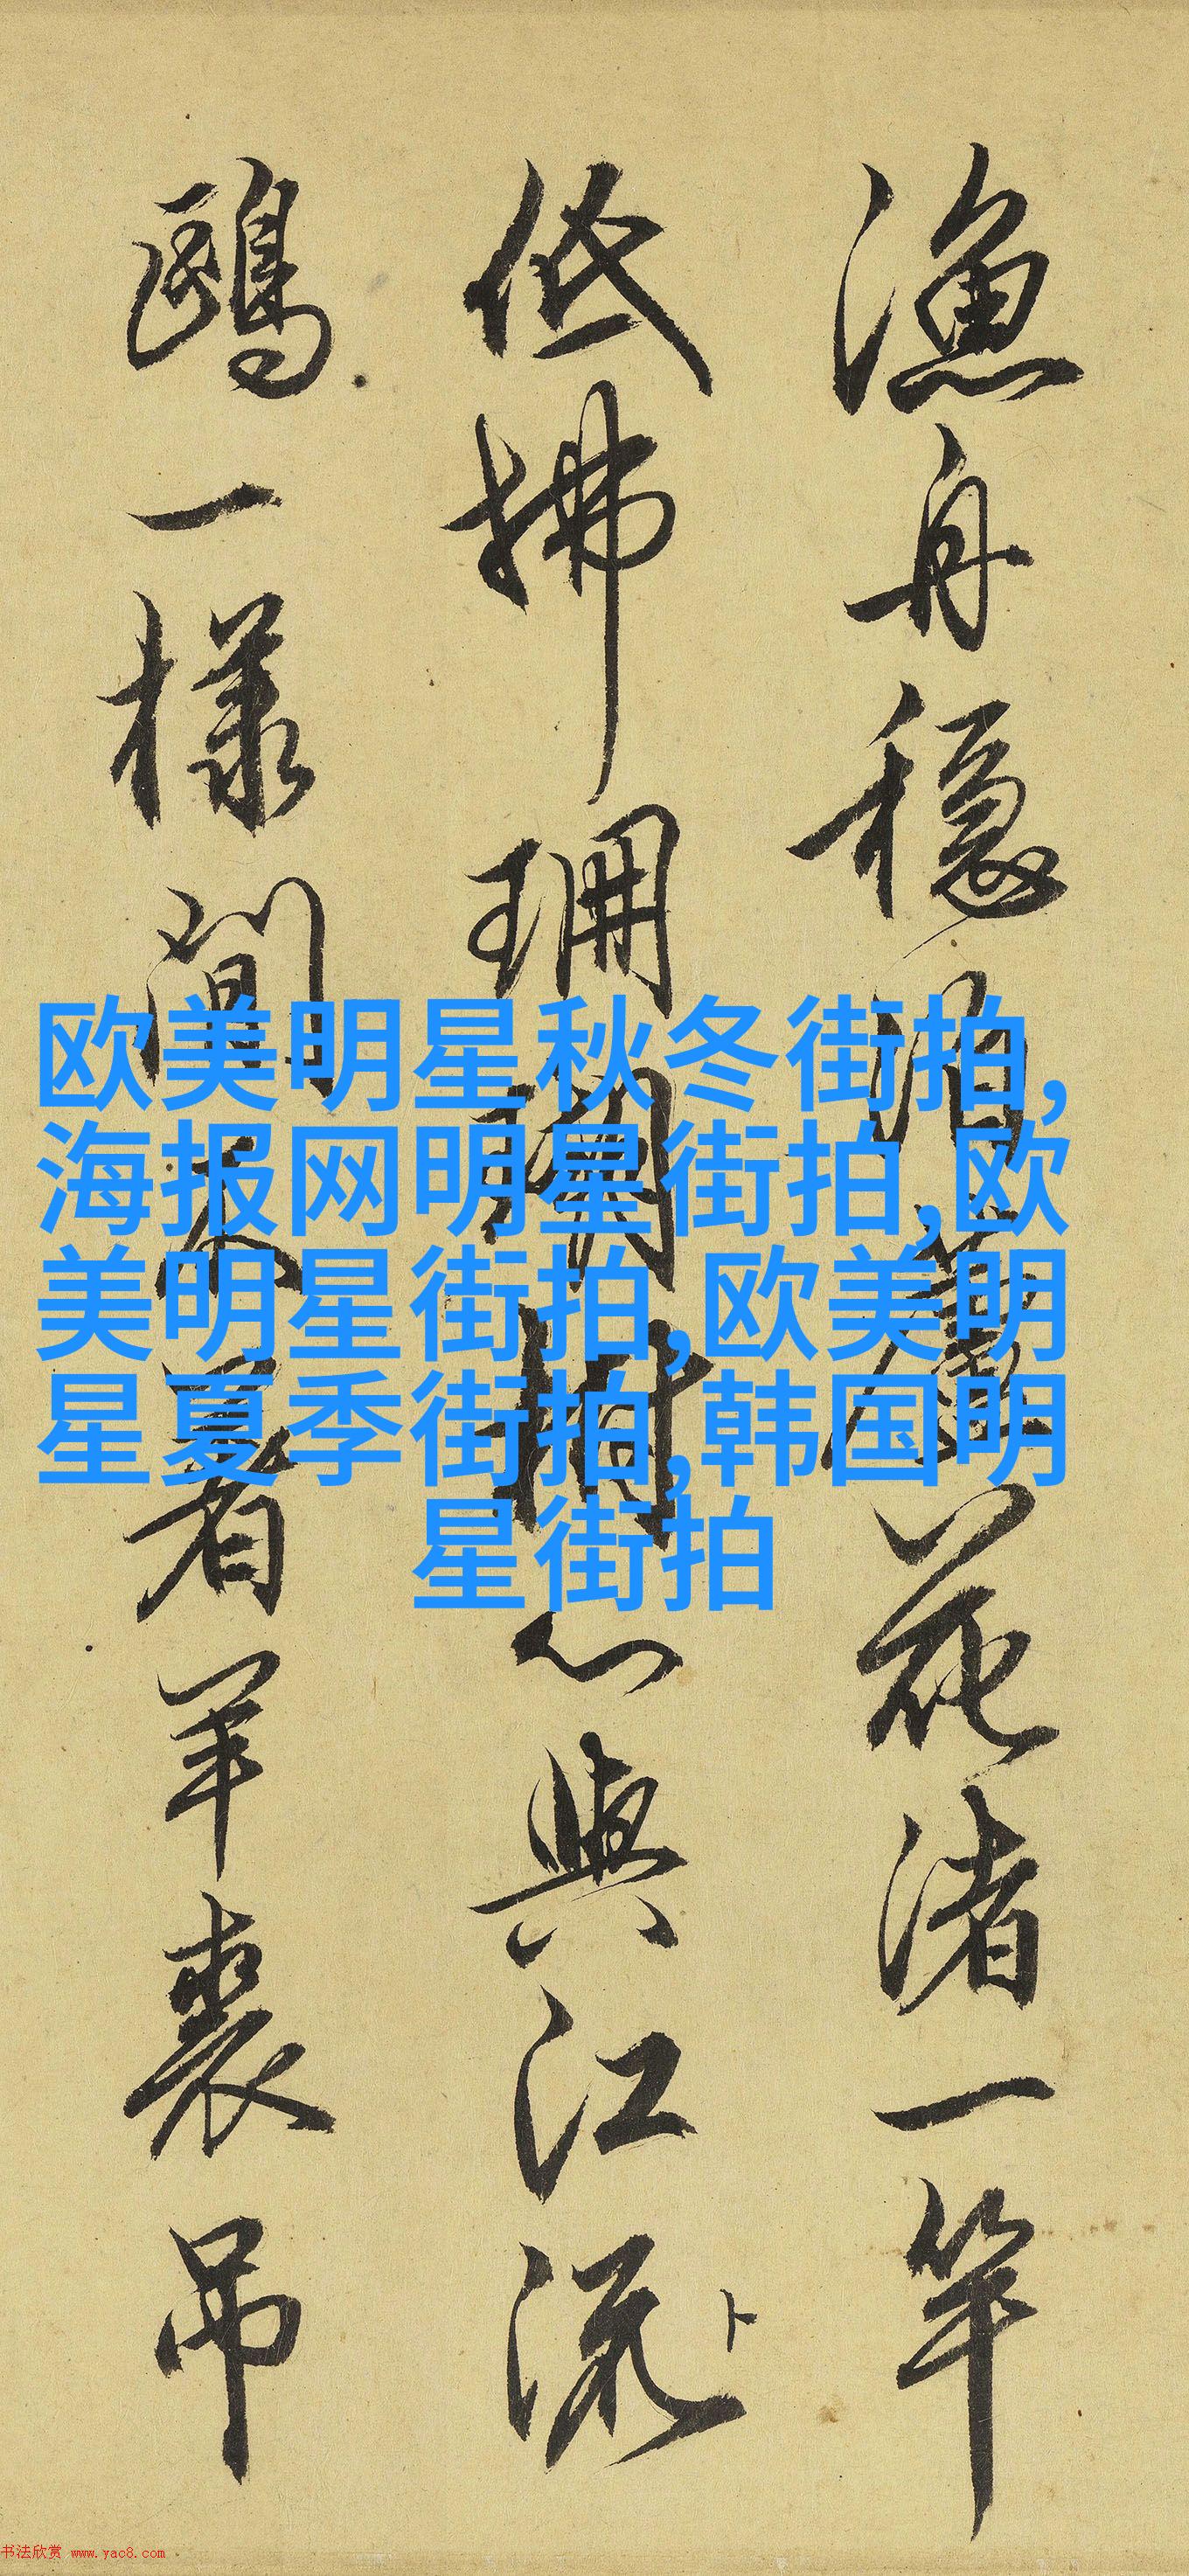 漁舟穩泊蘆花渚一竿
低拂珊瑚樹心與江流
鷗一樣閒不羨羊裘吊
卜
欧美明星秋冬街拍,
海报网明星街拍,欧
美明星街拍,欧美明
星夏季街拍,韩国明
星街拍
书法欣赏 www.yac8.com